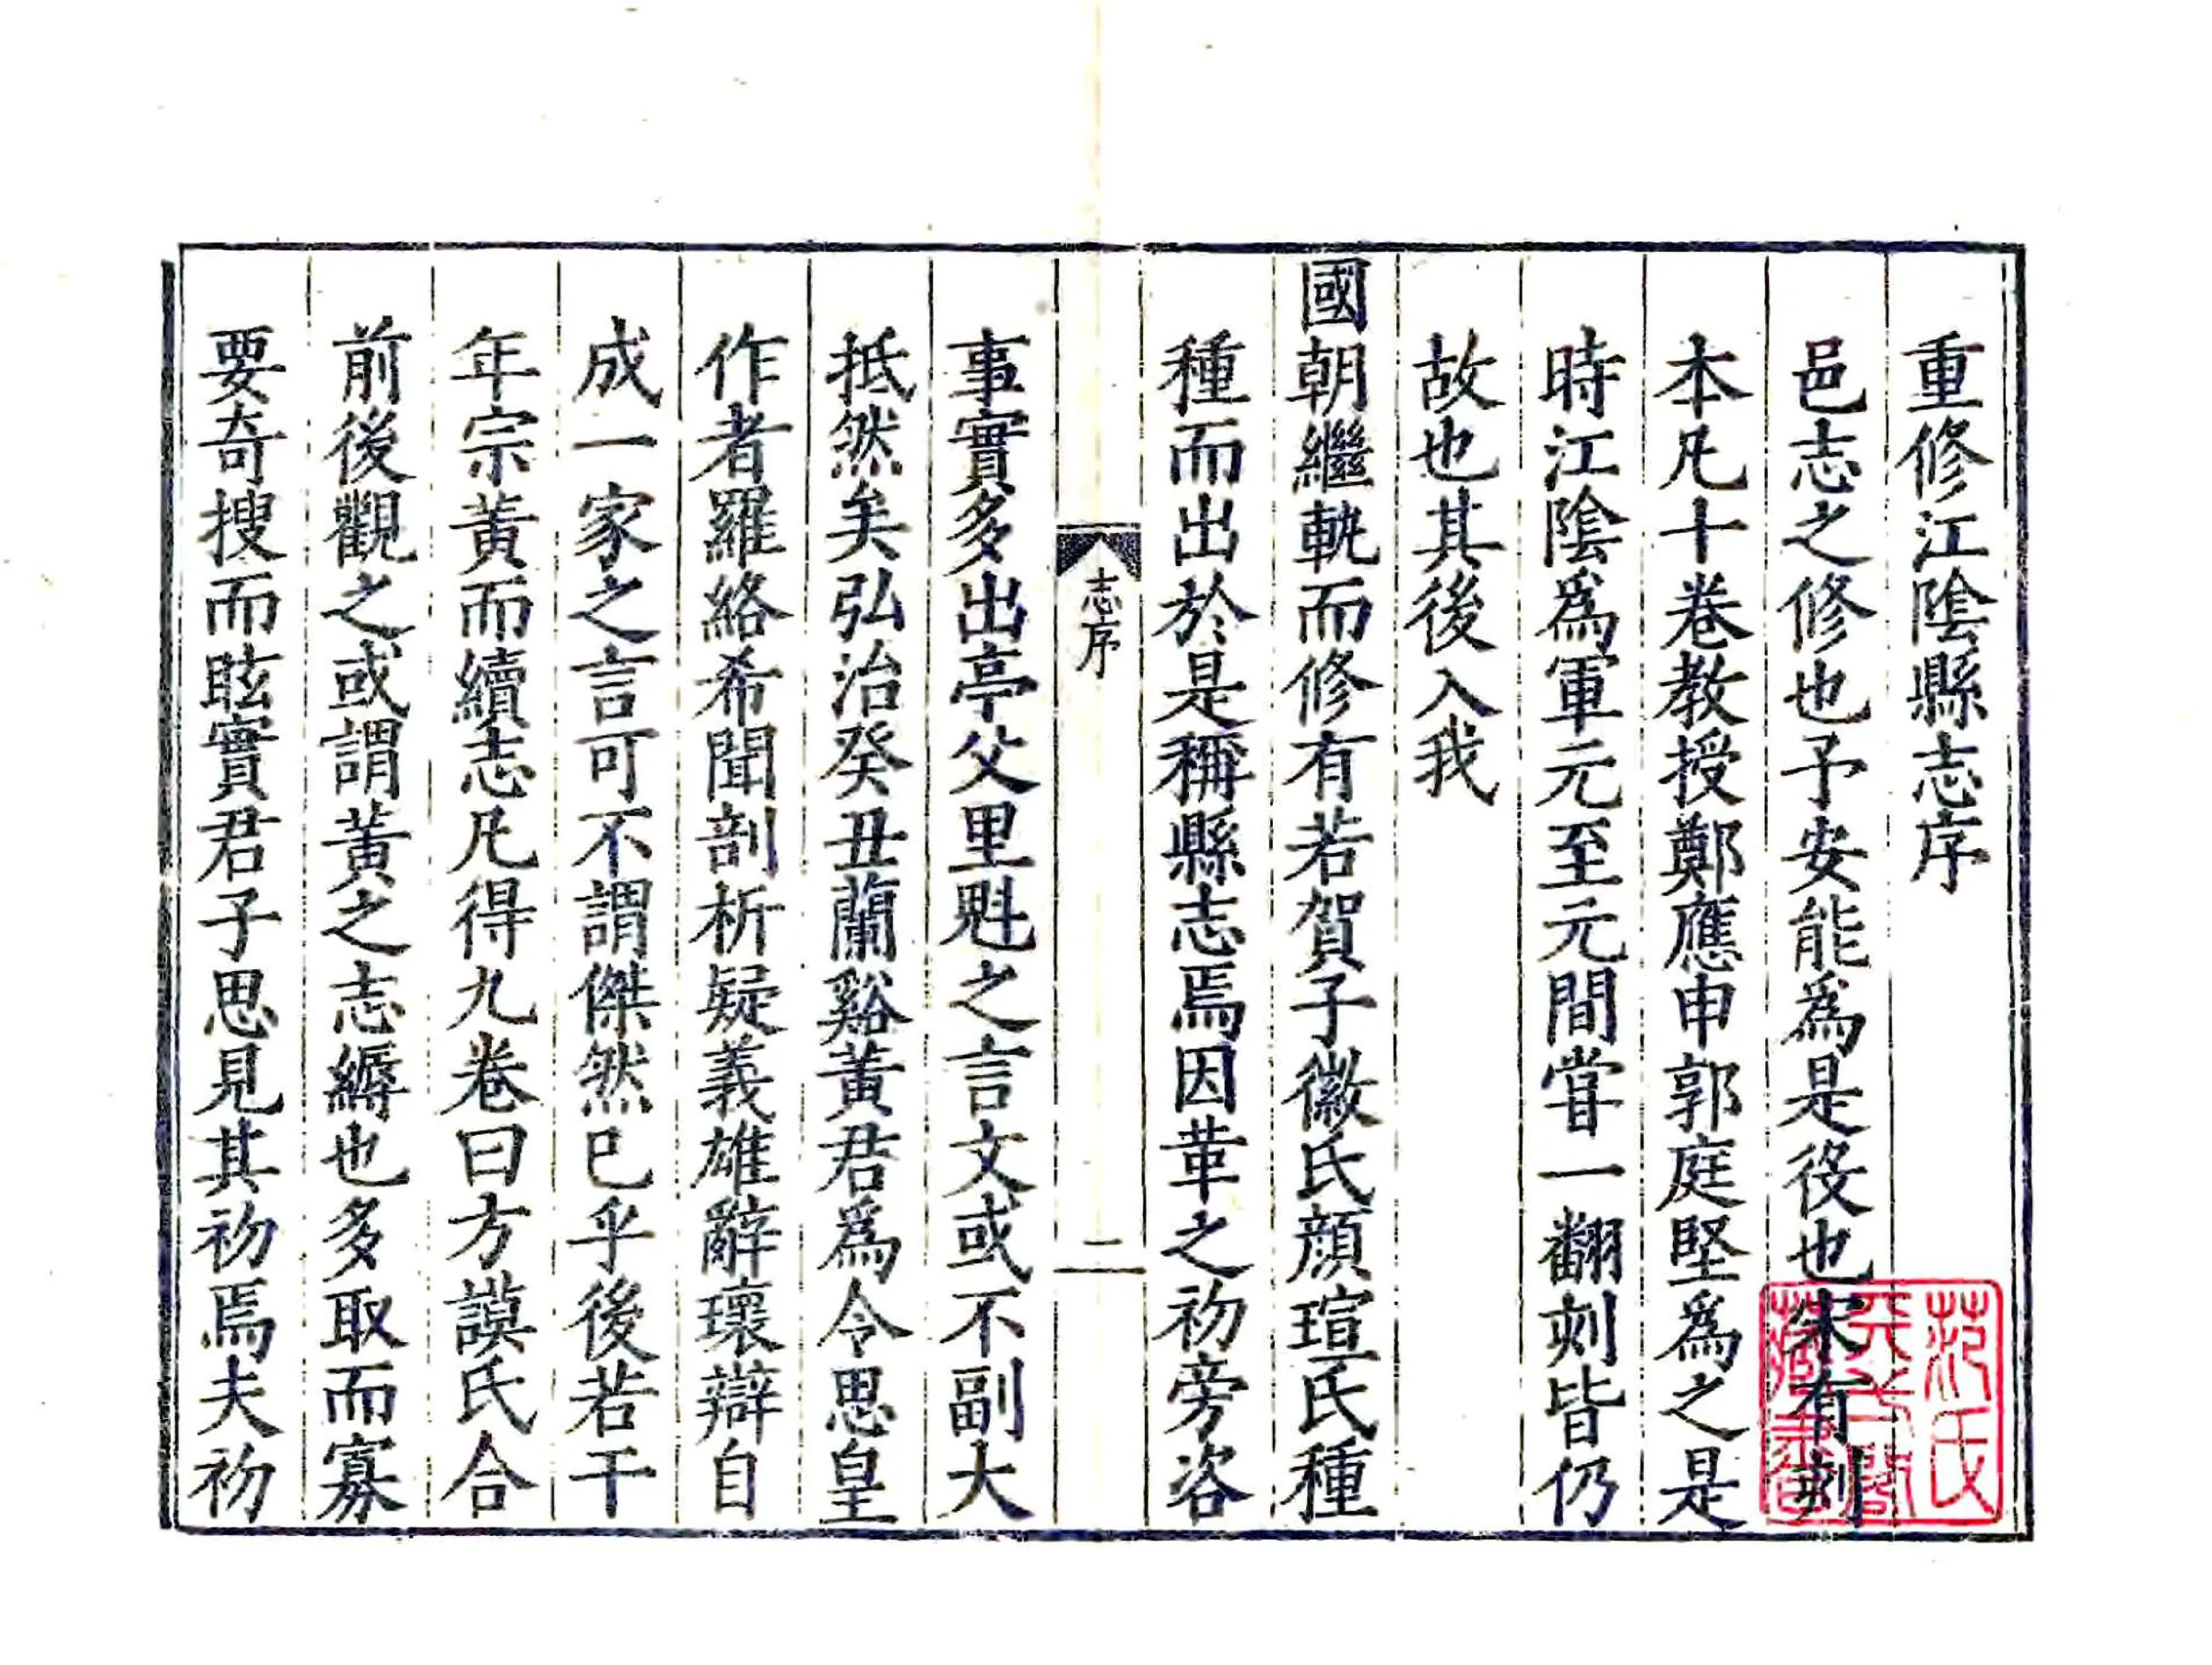 重修江陰縣志序
邑志之修也予安能爲是役也宋有刻
本凡十卷教授鄭應申郭庭堅爲之是
時江陰爲軍元至元間甞一翻刻皆仍
故也其後入我
國朝繼軌而修有若賀子徽氏顏瑄氏種
種而出於是稱縣志焉因革之初旁咨
志序
二
事實多出亭父里魁之言文或不副大
抵然矣弘治癸丑蘭谿黃君爲令思皇
作者羅絡希聞剖析疑義雄辭瓌辯自
成一家之言可不謂傑然已乎後若干
年宗黃而續志凡得九卷曰方謨氏合
前後觀之或謂黃之志縟也多取而寡
要奇搜而眩實君子思見其初焉夫初
范氏
天一閣
藏書